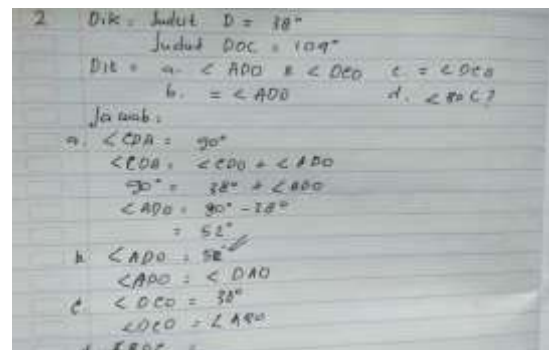 2 Dik : Sudut D = 38°
Sudut DOC = 104°
Dit : a. < ADO & < DCO c. = < DCO
b. = < ADO d. < BOC?
Jawab :
a. < CDA = 90°
< CDA = < CDO + < ADO
90° = 38° + < ADO
< ADO = 90° - 38°
= 52°
b < ADO = 52°
< ADO = < DAO
c. < DCO = 38°
< DCO =